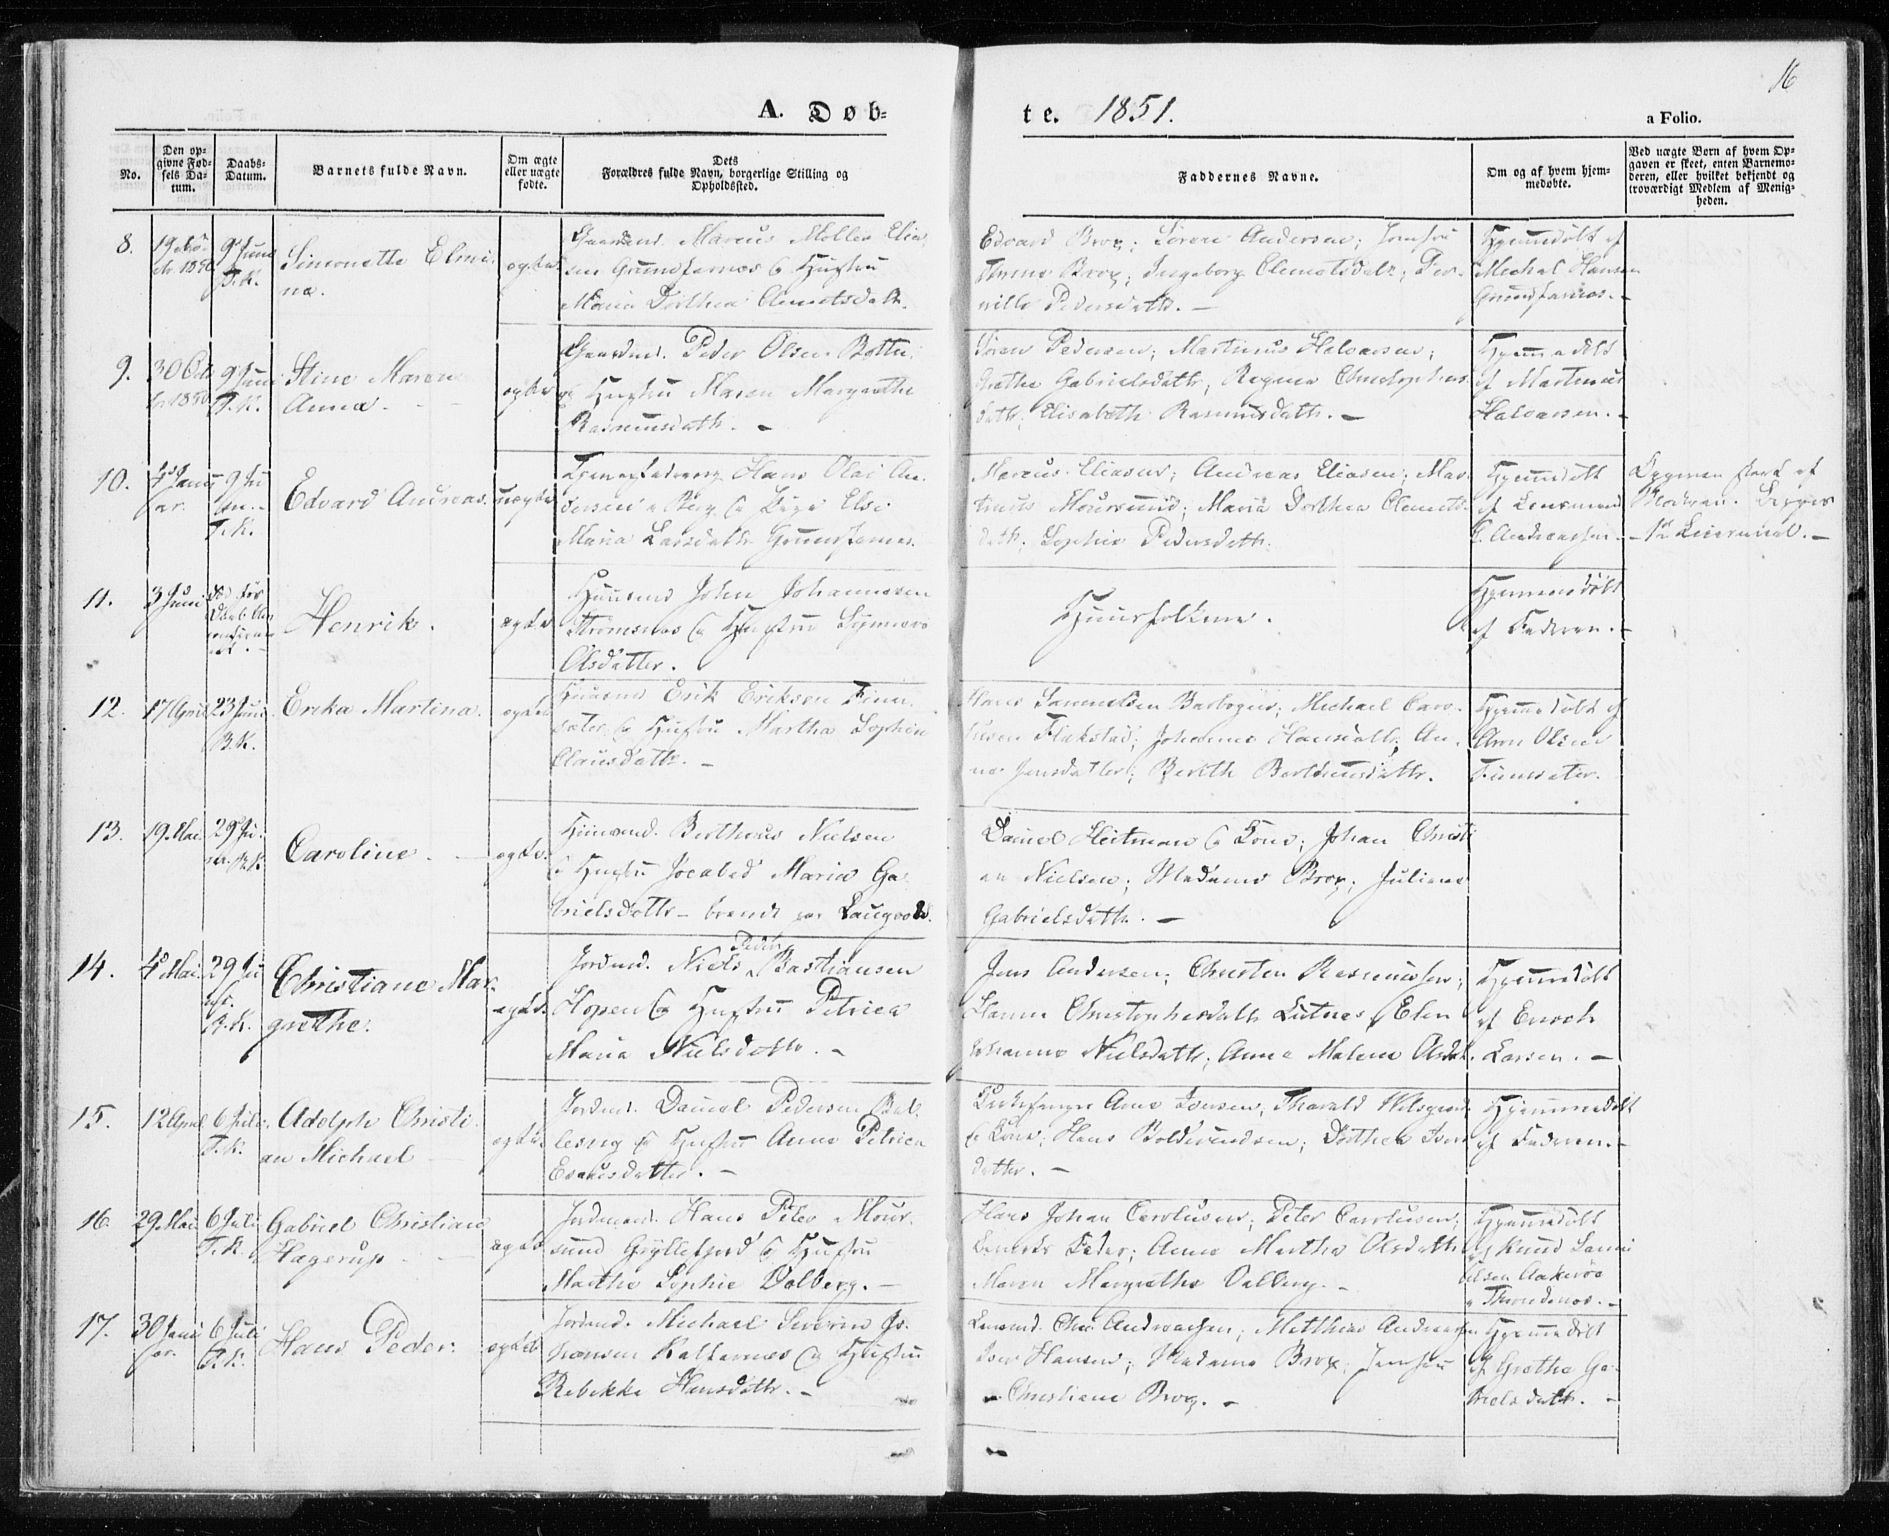 16
A. Døb-
te. 1851.
a Folio.
No.
Den op-
givne Fød-
sels Da-
tum.
Daabs-
Datum.
Barnets fulde Navn.
Om ægte
eller uægte
fødte.
Dets
Forældres fulde Navn, borgerlige Stilling og
Opholdssted.
Faddernes Navne.
Om og af hvem hjem-
medøbte.
Ved uægte Børn af hvem Op-
gaven er skeet, enten Barnemo-
deren, eller hvilket bekjendt og
troværdigt Medlem af Menig-
heden.
8.
9 Juni
T.K.
Simonette Elmi-
na.
ægte
Gaardmd. Marcus Møller Elia-
sen Grundfarnæs & Hustru
Maria Dorthea Clemetsdatt.
Edvard Brox; Søren Andersen; Jomfru
Brox; Ingeborg Clemetsdatr; Per-
nille Pedersdattr. -
Hjemmedøbt af
Michal Hansen
Grundfarnæs. -
9.
30 Oct
br 1850
9 Juni
T.K.
Stine Maren
Anna. -
ægte
Gaardmd. Peder Olsen
& Hustru Maren Margrethe
Rasmusdattr. -
Søren Pedersen; Martinus Halvorsen;
Grethe Gabrielsdattr; Regina Christophers-
dattr; Elisabeth Rasmusdattr. -
Hjemmedøbt
af Martinus
Halvorsen. -
10.
4 Janu-
ar.
9 Ju-
ni. -
T.K.
Edvard Andreas.
uægte
Hans Olai An-
dersen Berg & Pige Else
Maria Larsdattr Grundfarnæs.
Marcus Eliasen; Andreas Eliasen; Mar-
tinus Moursund; Maria Dorthea Clemets-
dattr; Sophie Pedersdattr.
Hjemmedøbt
af Lensmand
C. Andreassen -
11.
3 Juni
Død før
Henrik.
ægte
Huusmd John Johannesen
Strømsnes & Hustru
Olsdatter.
Huusfolkene.
Hjemmedøbt
af Faderen. -
12.
17 April
23 Juni
B.K.
Erika Martina.
ægte
Huusmd Erik Eriksen Finn-
sæter & Hustru Martha Sophia
Clausdattr. -
Hans Samuelsen Barbogen; Michael Caro-
liusen Flakstad; Johanna Hansdattr; An-
na Jensdatter; Berith Bertheusdattr.
Hjemmedøbt af
Aron Olsen
Finnsæter.
13.
19. Mai
29 Ju-
ni. B.K.
Caroline. -
ægte
Huusmd. Bertheus Nielsen
& Hustru Jocabed Maria Ga-
brielsdattr - boende paa Laugvold.
Daniel Heitman & Kone; Johan Christi-
an Nielsen; Madame Brox; Juliana
Gabrielsdattr. -
14.
4 Mai
29 Ju-
ni.
B.K.
Christiane Mar-
grethe.
ægte
Jordmd. Niels Peder Basthiansen
Hopen & Hustru Petrica
Maria Nielsdattr. -
Jens Andersen; Christen Rasmussen;
Hanna Christophersdattr Lutnes; Elen
Johanna Nielsdattr; Anna Malene Olsdat.
Hjemmedøbt
af Enoch
Larsen. -
15.
12 April
6 Juli
T.K.
Adolph Christi-
an Michael
ægte
Jordmd. Daniel Pedersen Bal-
lesvig & Hustru Anne Petrica
Esaiusdatter. -
Kirkesanger Arne Iversen; Tharald Nilsgaard
& Kone; Hans Boldevindsen; Dorthea Ivers-
datter. -
Hjemmedøbt
af Faderen. -
16.
29. Mai
6 Juli
T.K.
Gabriel Christian
Hagerup -
ægte
Jordmand. Hans Peter Mour-
sund Gryllefjord & Hustru
Martha Sophie Dalberg. -
Hans Johan Carolusen; Peter Carolusen;
Barnets Fader; Anne Martha Olsdattr
Maren Margrethe Dalberg. -
Hjemmedøbt
af Knud Samu-
elsen Aakerøe
Throndenæs. -
17.
30 Janu-
ar.
6 Juli
B.K.
Hans Peder.
ægte
Jordmd. Michael Severin Jo-
hansen Kalfarnes & Hustru
Rebekka Hansdattr. -
Lensmd. Chr. Andreassen; Matthias Andreassen
Iver Hansen; Madame Brox; Jomfru
Christiane Brox. -
Hjemmedøbt
af Grethe Ga-
brielsdattr. -